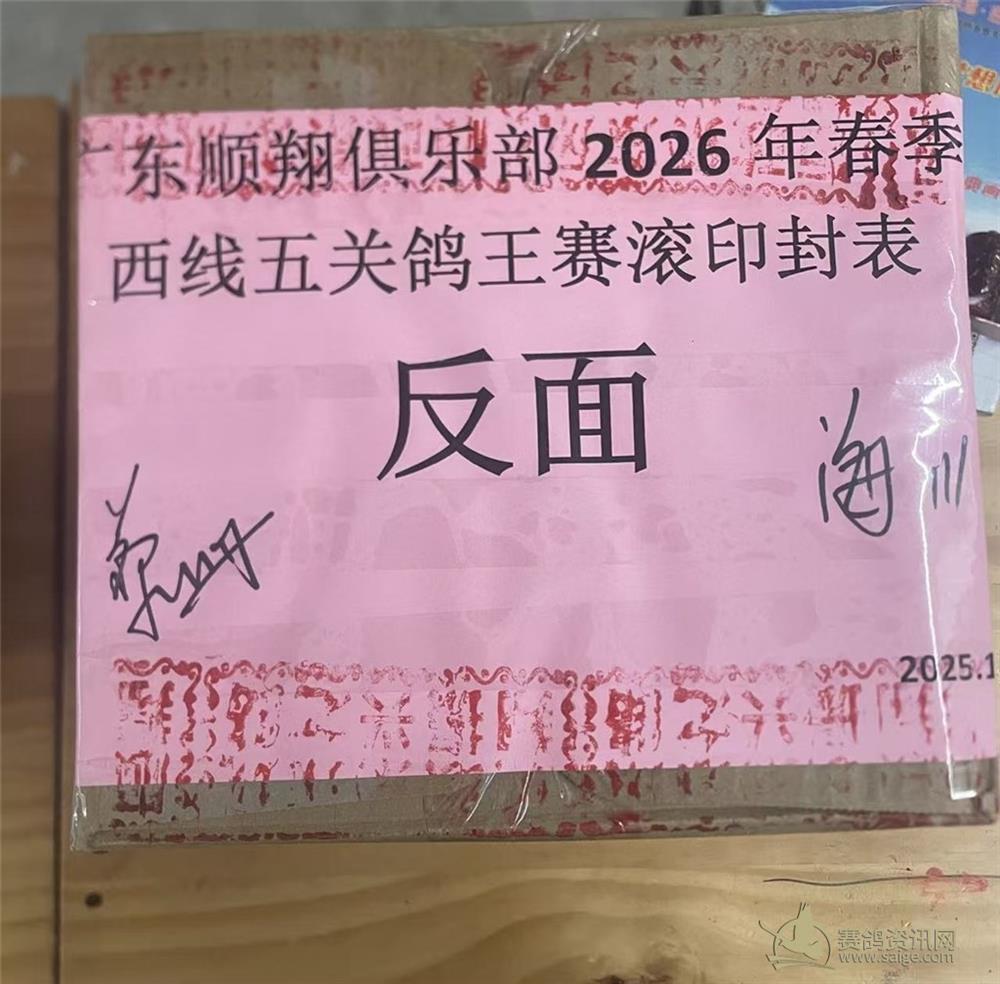 广东顺翔俱乐部 2026 年春季
西线五关鸽王赛滚印封表
反面
海川
2025.1
赛鸽资讯网
www.saige.com